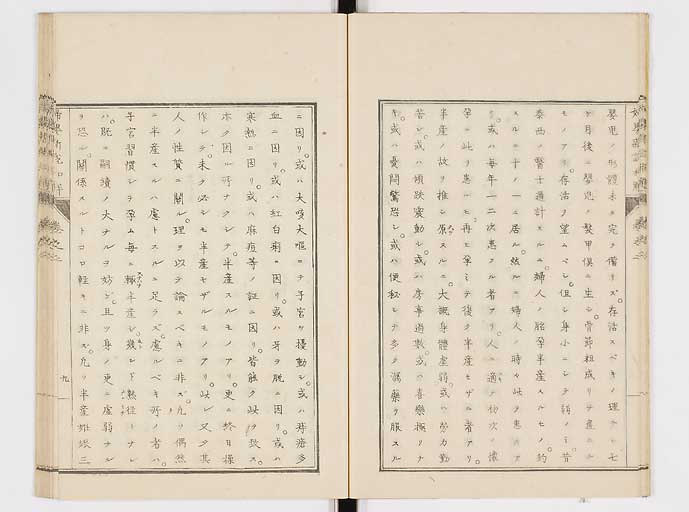 嬰児ノ形體未タ完ヲ備ヘズ。存活スベキノ理ナシ七
ケ月後ニ嬰児ノ髮甲倶ニ生シ。骨節粗成リテ産ル
モノアリ。存活ヲ望ムベシ。但シ身小ニシテ弱ノミ。昔
泰西ノ醫士通計スルニ。婦人ノ胎孕半産スルモノ。約
スルニ十ノ一ニ居ル。然ルニ婦人ノ時々此ヲ患フア
リ。或ハ毎年一二次患フル者アリ。人ニ適テ初次ノ懷
孕ニ此ヲ患ルモ。再ヒ孕ミテ復タ半産セザル者アリ。
半産ノ故ヲ推シ原スルニ。大概身體虚弱。或ハ勞力勤
苦シ。或ハ傾跌震動シ。或ハ房事過數。或ハ喜樂極リナ
キ。或ハ憂悶驚恐シ。或ハ便秘シテ多ク瀉藥ヲ服スル
ニ因リ。或ハ大咳大嘔ニテ子宮ヲ擾動シ。或ハ痔瘡多
血ニ因リ。或ハ紅白痢ニ因リ。或ハ牙ヲ脱ニ因リ。或ハ
寒熱ニ因リ。或ハ麻痘等ノ証ニ因リ。皆能ク此ヲ致ス。
亦タ因ル所ナクシテ。半産スルモノアリ。更ニ終日操
作シテ。未タ必シモ半産セザルモノアリ。此レ又タ其
人ノ性質ニ關ル。理ヲ以テ論スベキニ非ス。凡ソ偶然
ニ半産スルハ慮トスルニ足ラズ。慮ルベキ所ノ者ハ。
子宮習慣シテ孕ム毎ニ輒半産シ。幾ント熟徑トナレ
ハ。既ニ嗣續ノ大ナルヲ妨ケ。且ツ身ノ更ニ虚弱ナル
ヲ恐ル。關係スルトコロ輕キニ非ズ。凡ソ半産三
九